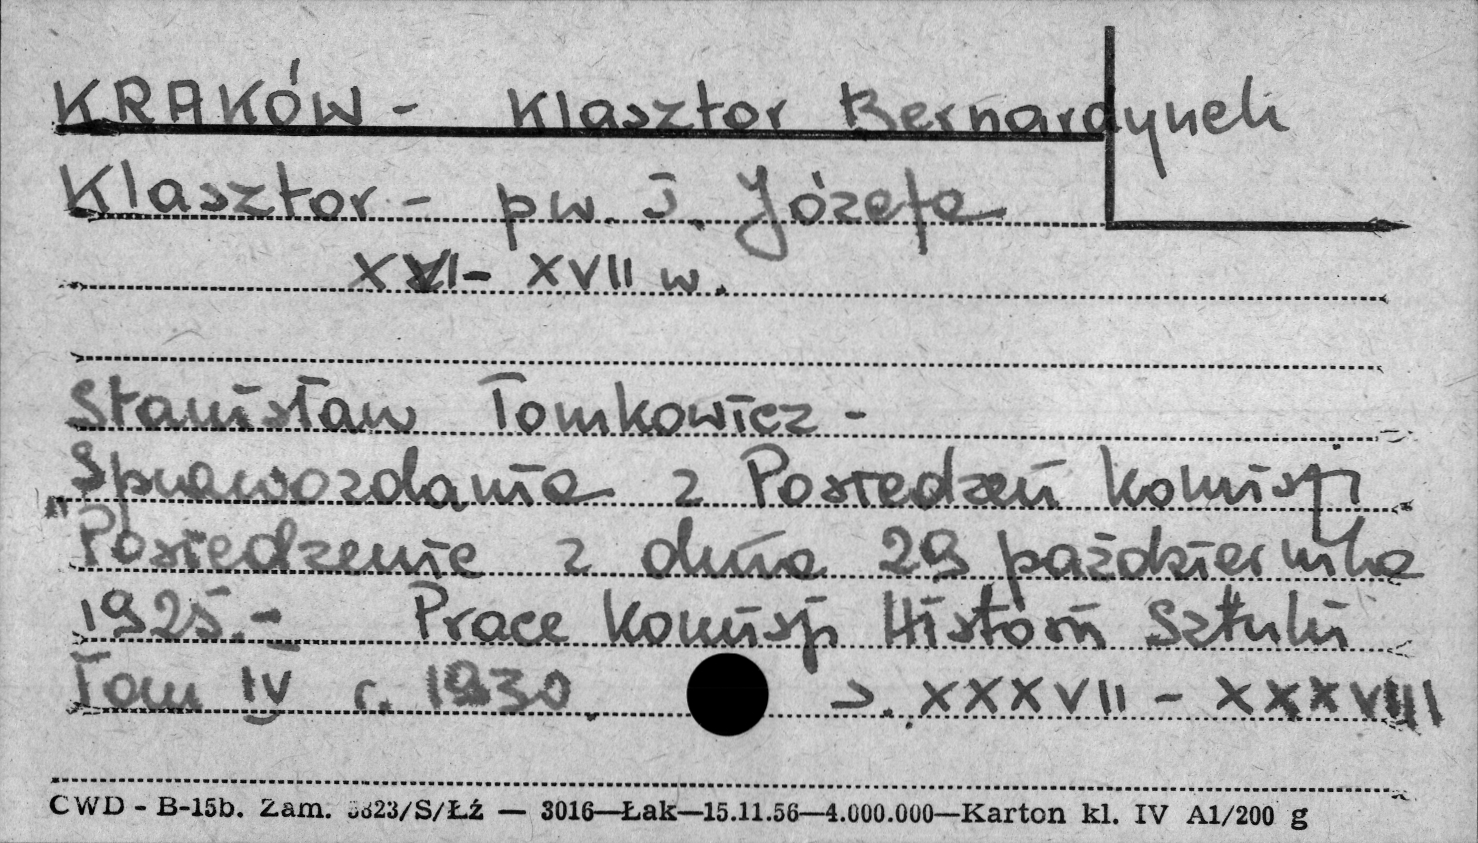 KRAKÓW - Klasztor Bernardynek
Klasztor - pw. Ś. Józefa
XVI - XVII w.
Stanisław Tomkowicz -
Sprawozdania z Posiedzeń Komisji
"Posiedzenie z dnia 29 października
1925. - Prace Komisji Historii Sztuki
Tom IV r. 1930. s. XXXVII - XXXVIII
CWD - B-15b. Zam. 3823/S/Łź — 3016—Łak—15.11.56—4.000.000—Karton kl. IV A1/200 g